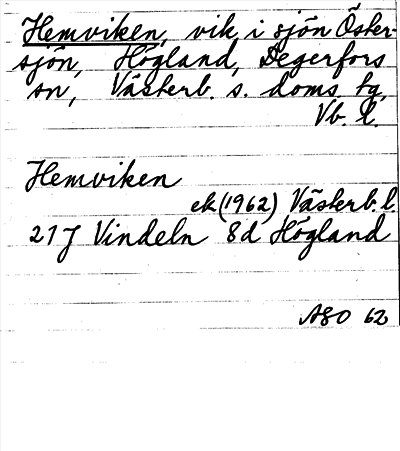 Hemviken, vik i sjön Öster-
sjön, Högland, Degerfors
sn, Västerb. s. doms. tg,
Vb. l.
Hemviken
ek (1962) Västerb. l.
21J Vindeln 8d Högland
ASO 62